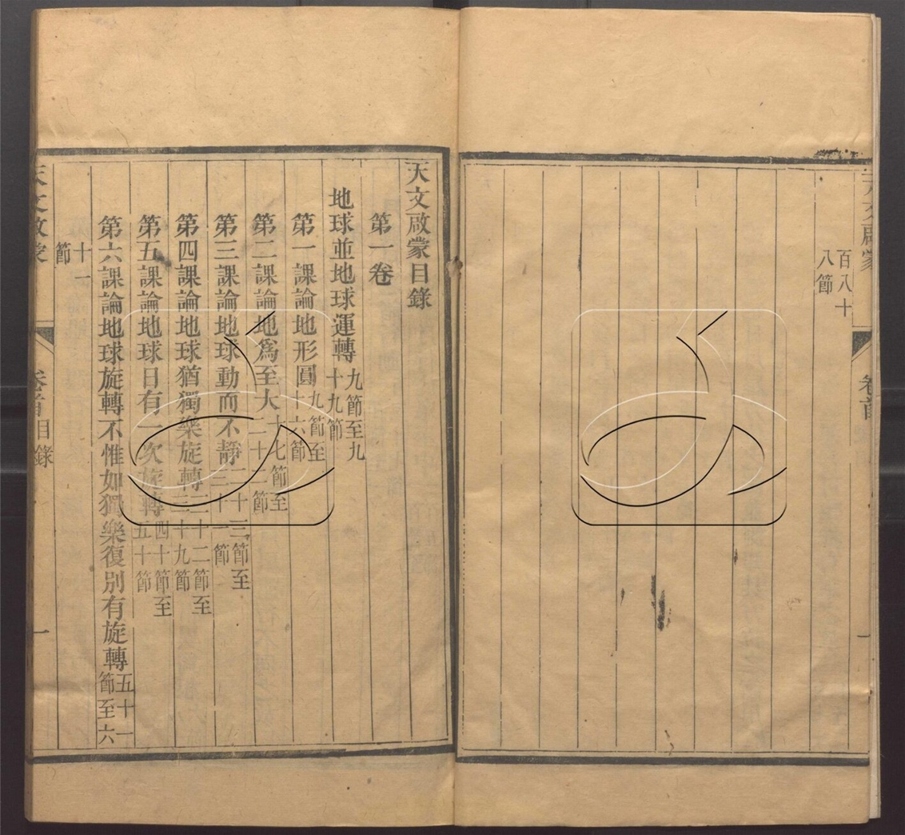 天文啟蒙
百八十
八節
卷首
一
天文啟蒙目錄
第一卷
地球並地球運轉九節至九十九節
第一課論地形圓九節至十六節
第二課論地爲至大十七節至二十二節
第三課論地球動而不靜二十三節至三十一節
第四課論地球猶獨樂旋轉三十二節至三十九節
第五課論地球日有一次旋轉四十節至五十節
第六課論地球旋轉不惟如獨樂復別有旋轉五十一節至六
十一
節
天文啟蒙
卷首目錄
一